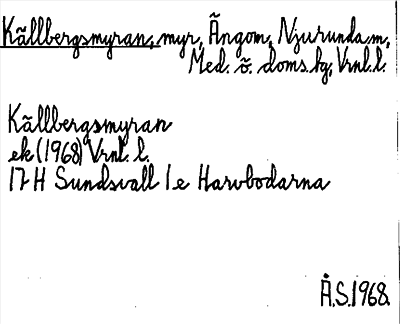 Källbergsmyran, myr, Ängom, Njurunda sn,
Med. ö. doms. hg, Vrnl. l.
Källbergsmyran
ek (1968) Vrnl. l.
17 H Sundsvall 1 e Harvbodarna
Å.S. 1968.